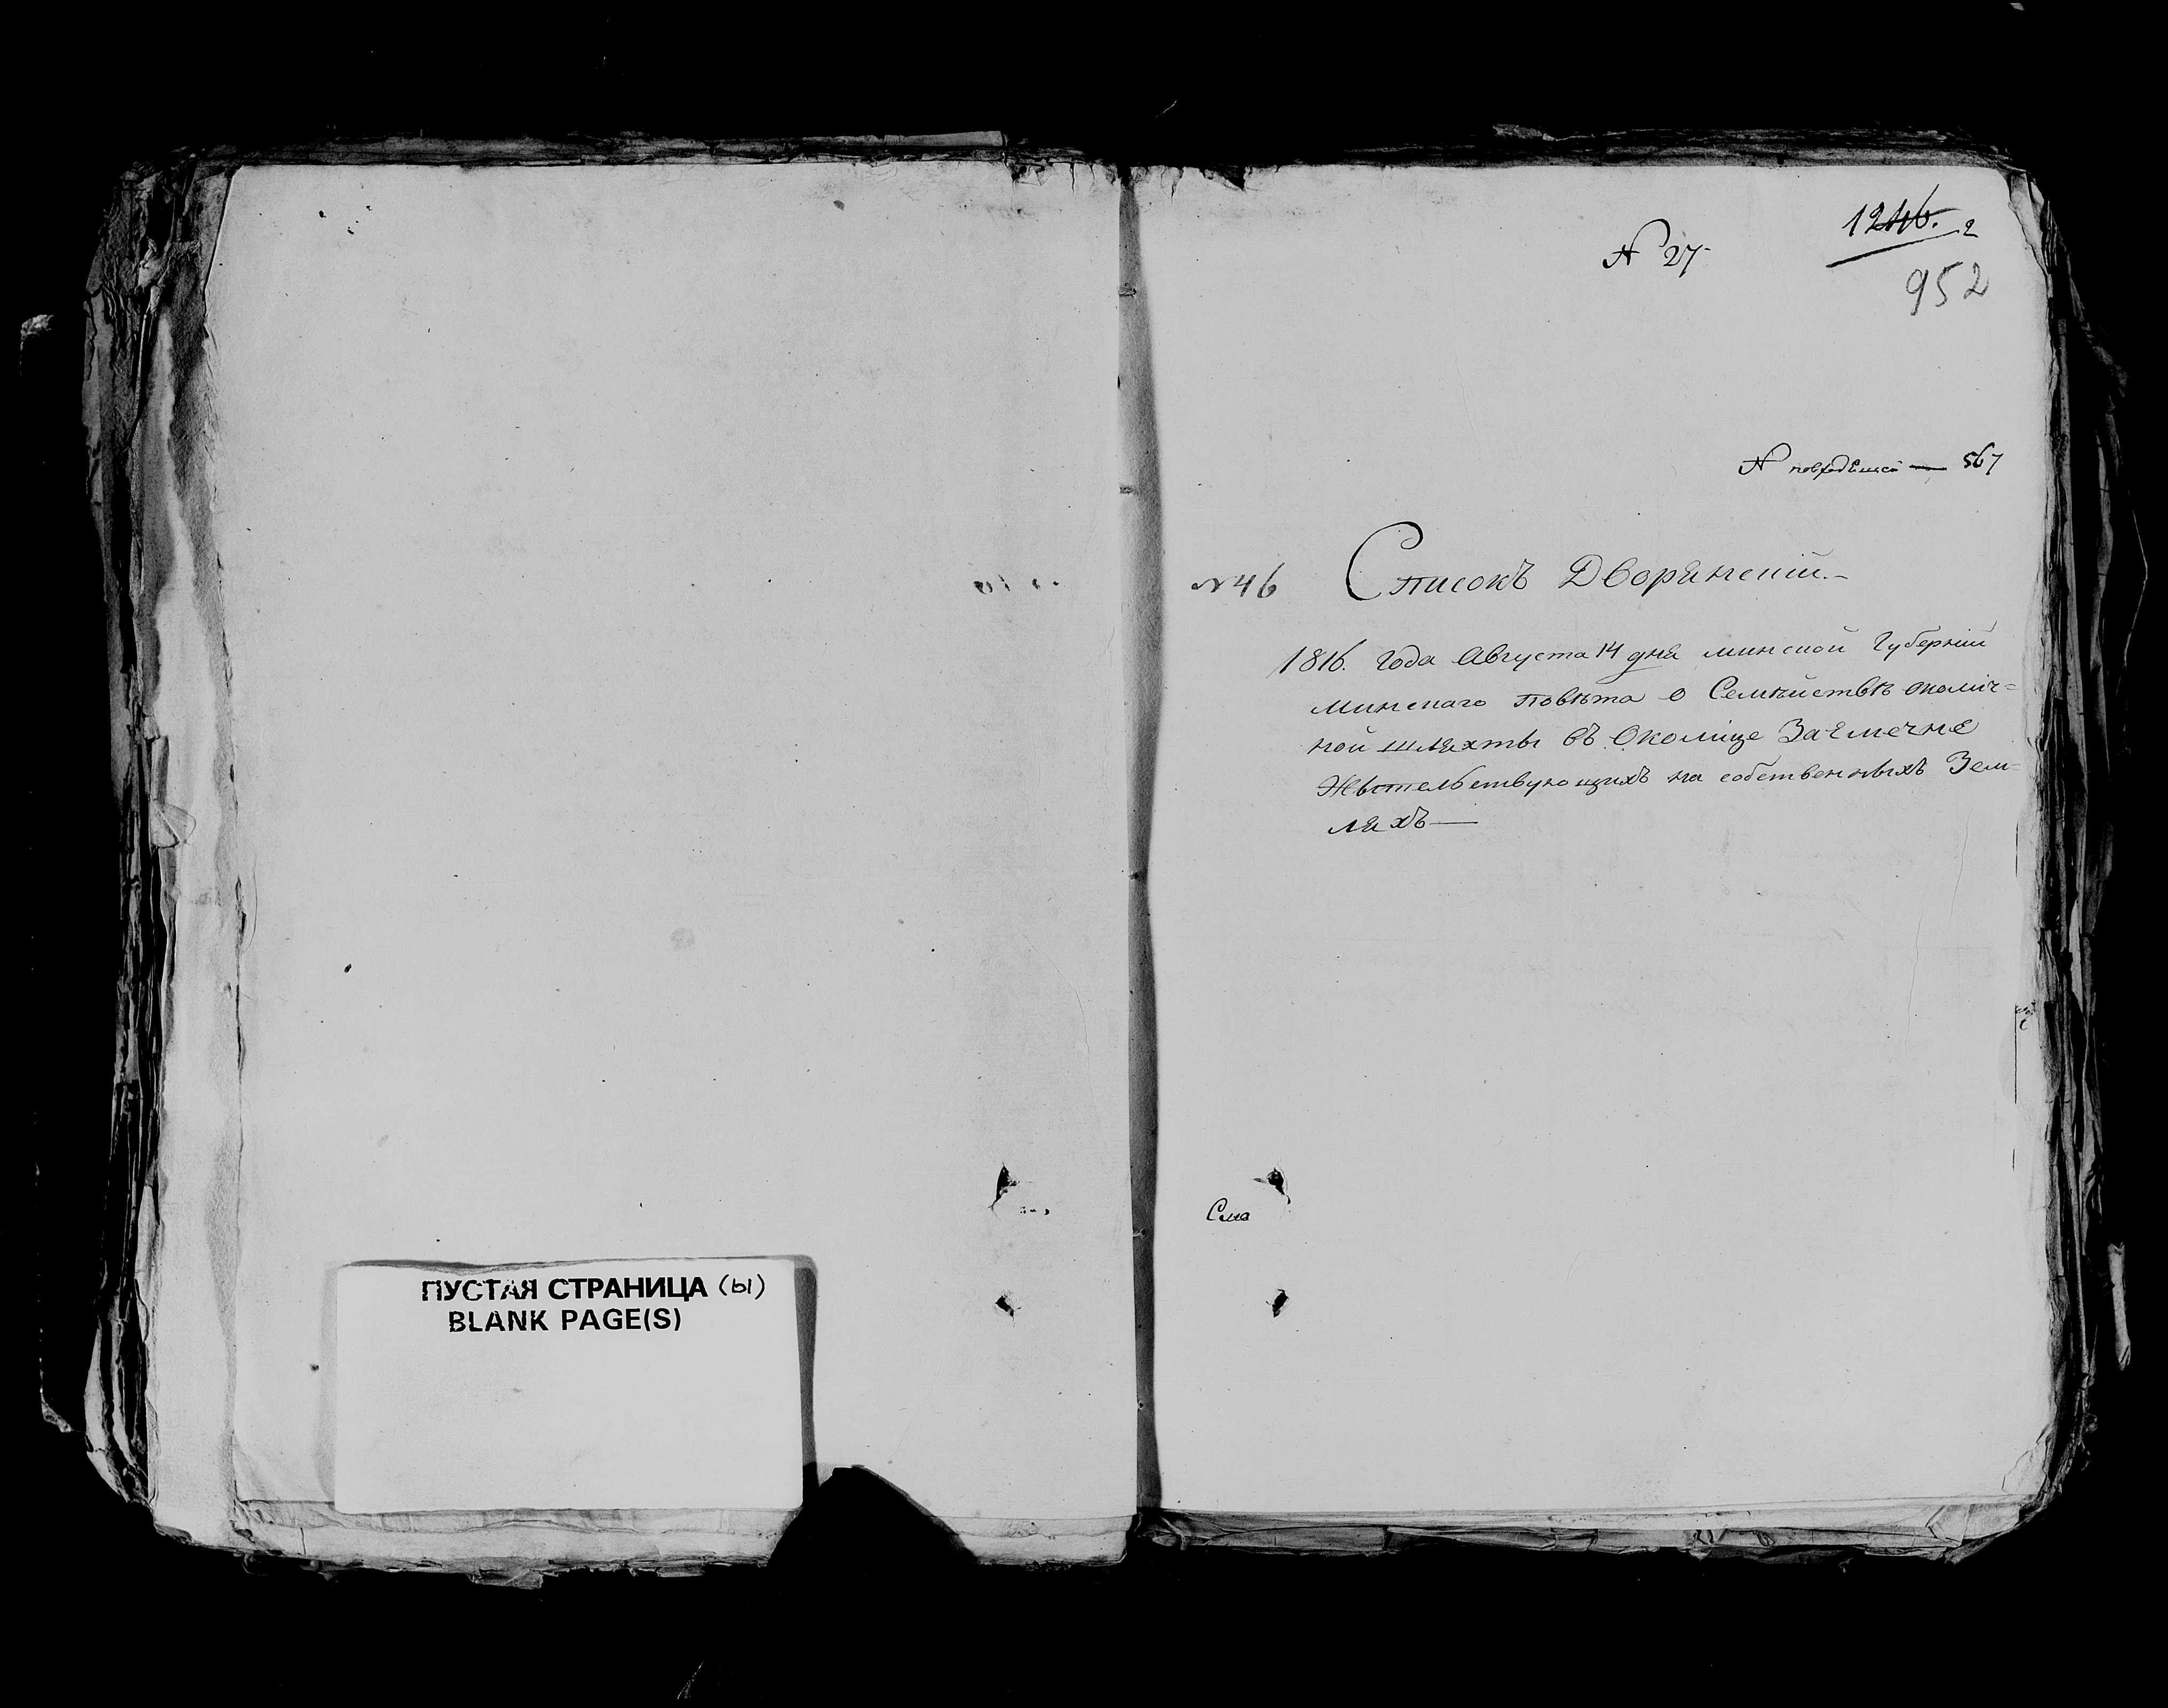 ПУСТАЯ СТРАНИЦА (ы)
BLANK PAGE(S)
N 27
1246. 2
952
N — 567
N 46
Списокъ Дворянскій.–
1816. года Августа 14 дня минской Губерніи
минскаго повѣта о Семѣйствѣ околич=
ной шляхты въ Околице Заямечне
Жытельствующихъ на собственныхъ Зем=
ляхъ —